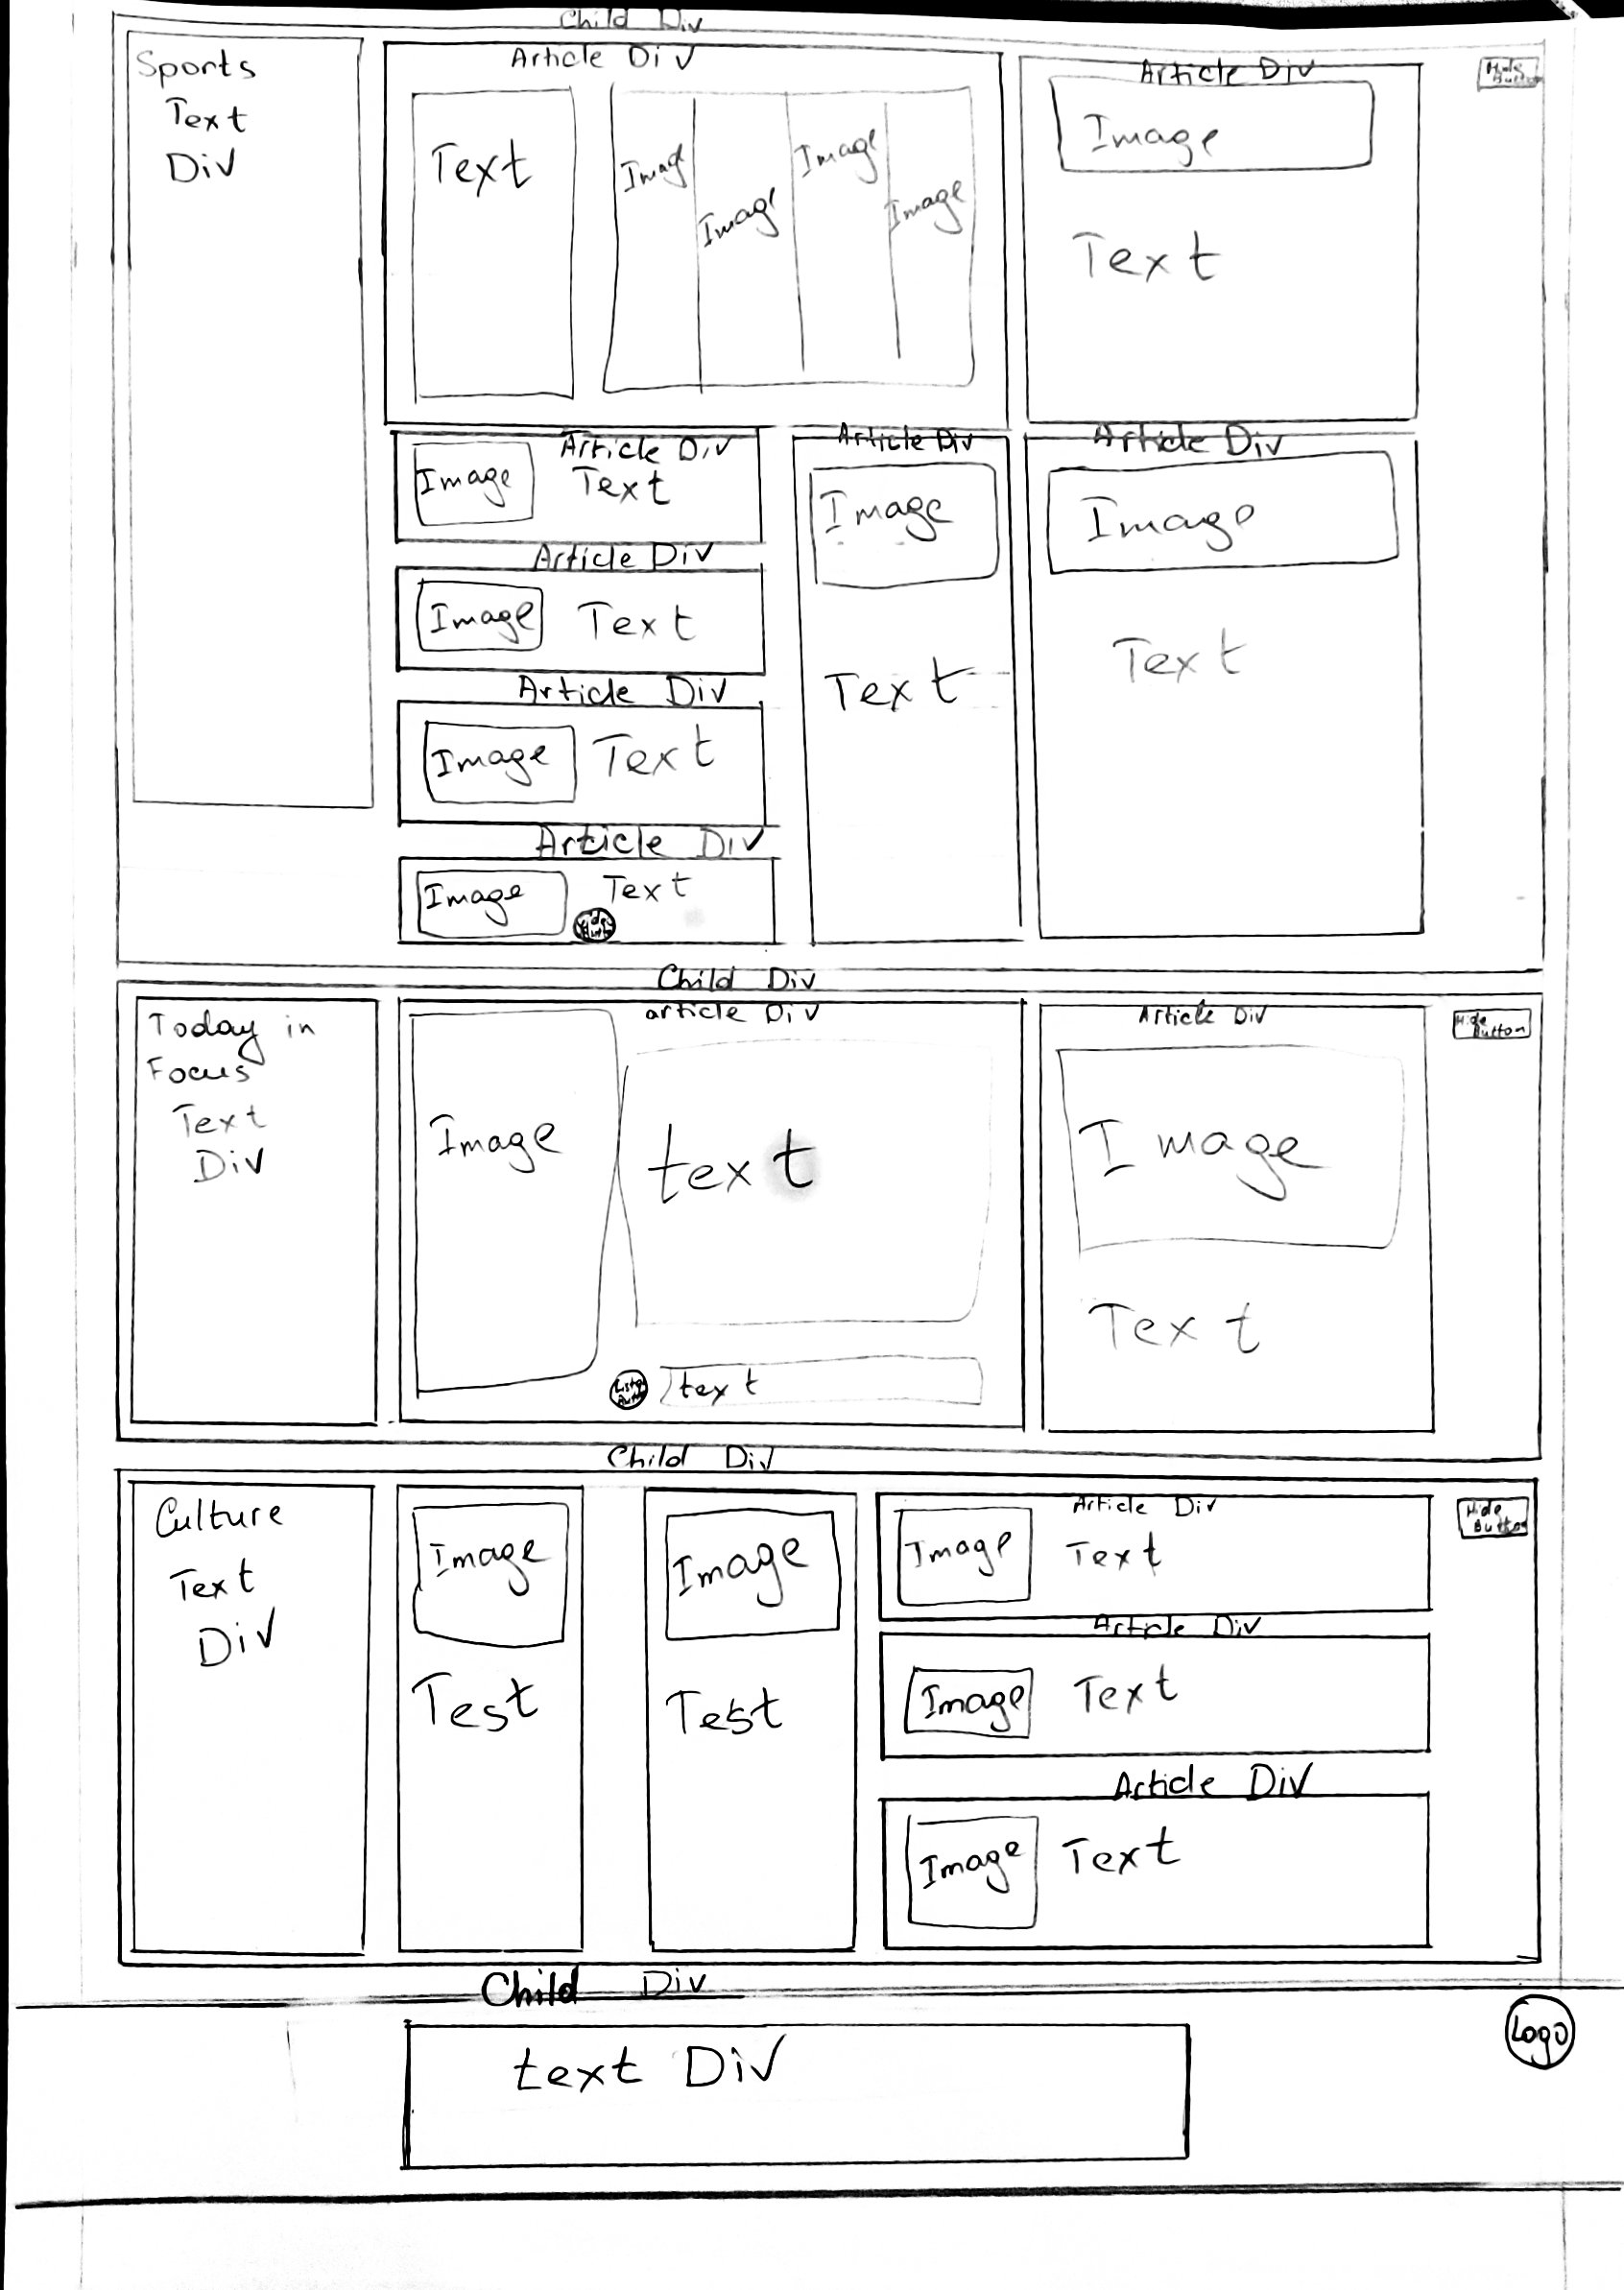 Child Div
Sports
Text
Div
Article Div
Text
Imag
Image
Image
Image
Article Div
Image
Text
Hide
Button
Article Div
Image
Text
Article Div
Image
Text
Article Div
Image
Text
Article Div
Image
Text
Article Div
Image
Text
Article Div
Image
Text
Child Div
Today in
Focus
Text
Div
article Div
Image
text
text
Article Div
Image
Text
Hide
Button
Child Div
Culture
Text
Div
Image
Test
Image
Test
Article Div
Image
Text
Article Div
Image
Text
Article Div
Image
Text
Hide
Button
Child Div
text Div
Logo